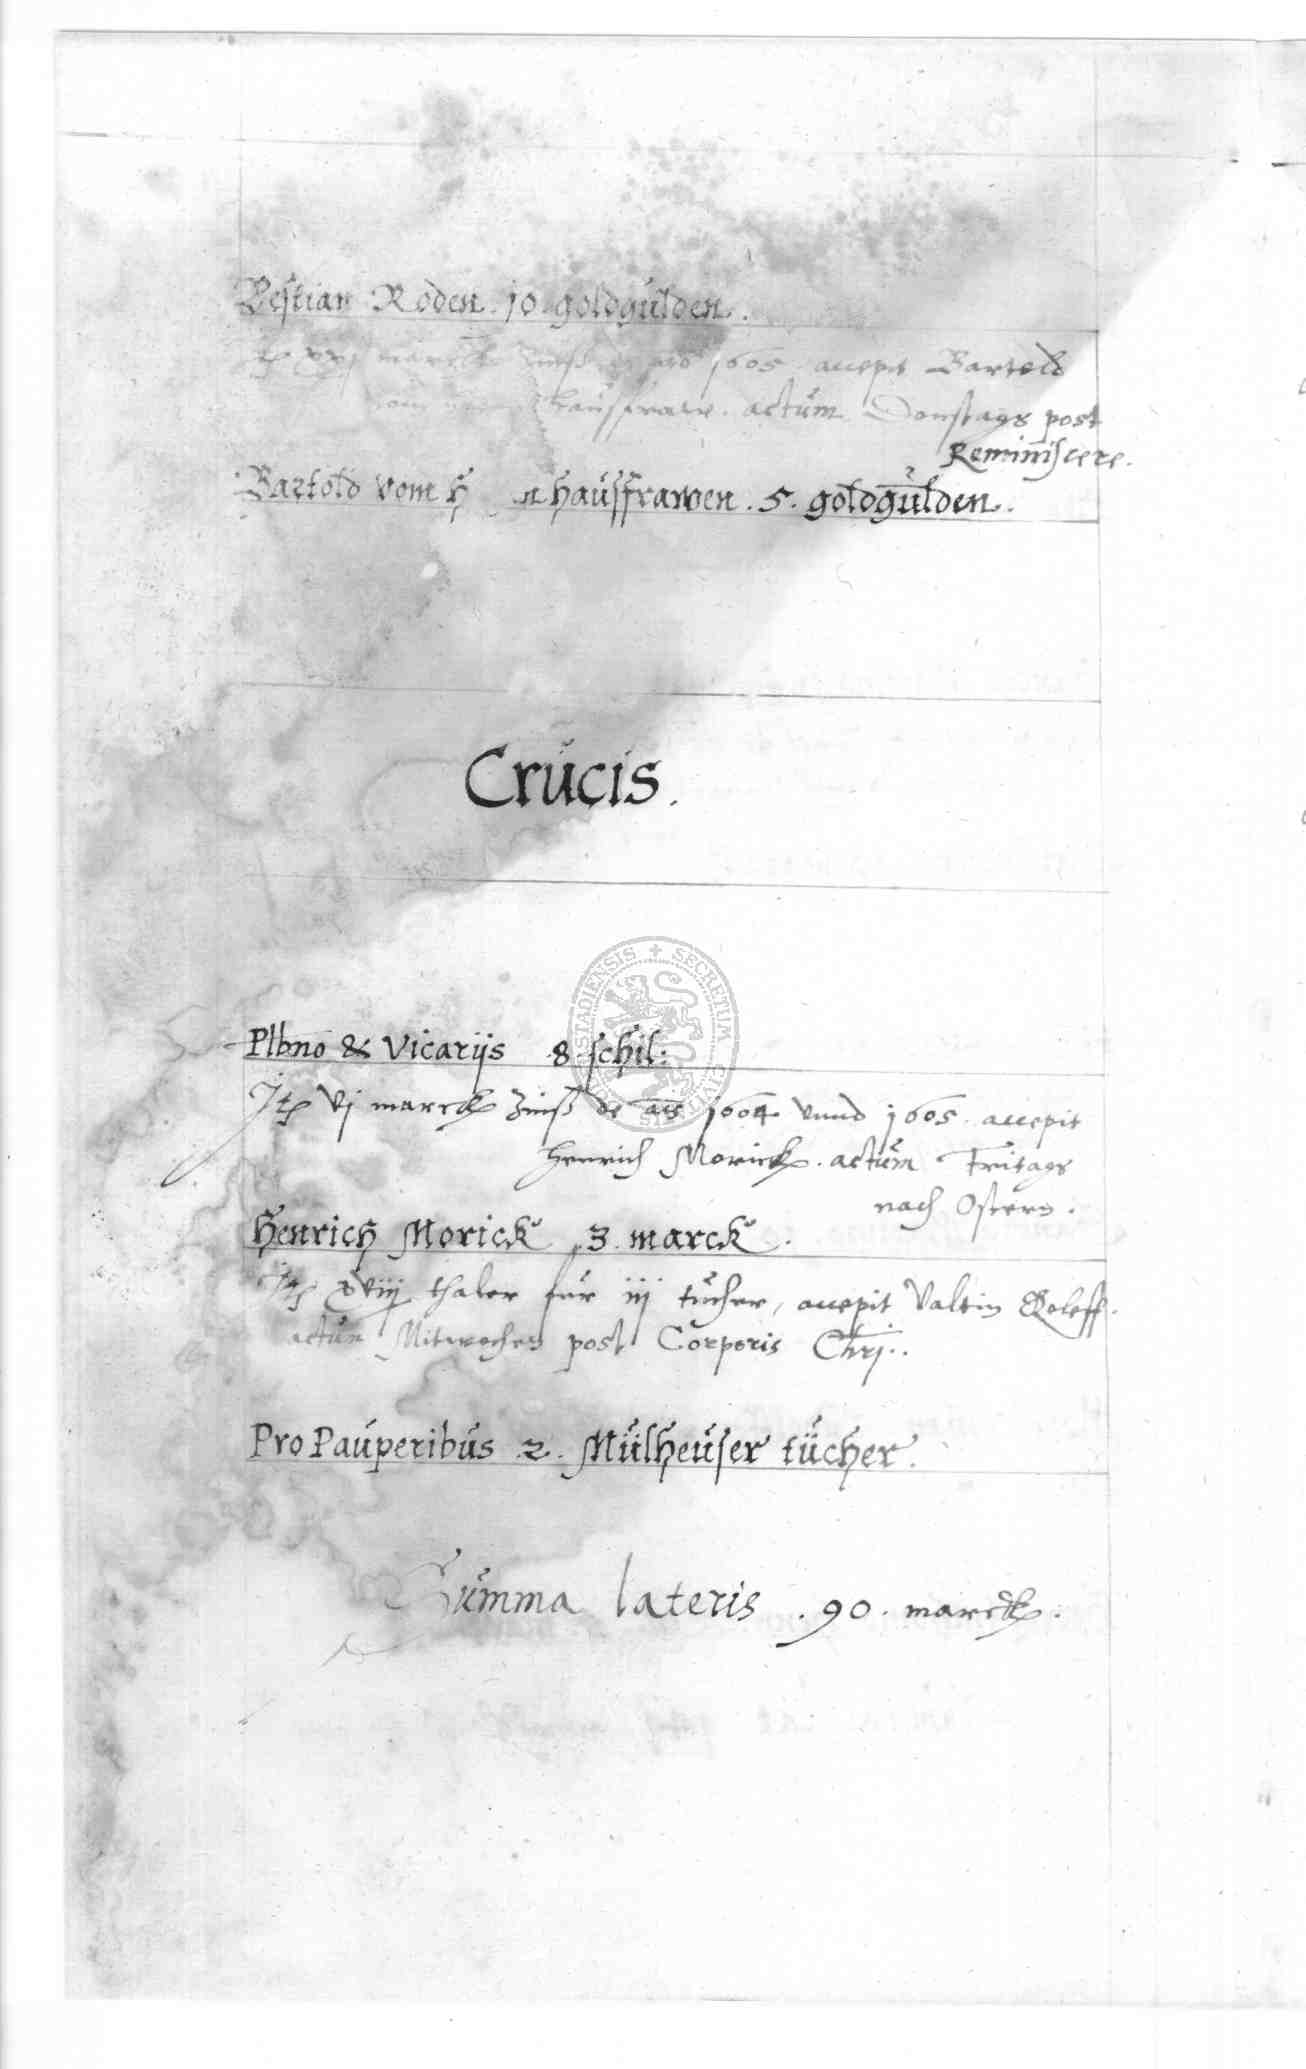 Bestian Roden . 10 . goldgulden .
Jtem marck Zinß 1605 . accepit Bartold
haussfraw . actum Donstags post
Reminiscere .
Bartold vom H n haussfrawen . 5 . goldgulden .
Crucis .
Plbno & Vicarijs 8 . schil :
Jtem vj marck Zinß de ais 1604 vnnd 1605 . accepit
Henrich Morick . actum Fritags
nach Ostern .
Henrich Morick 3 . marck .
Jtem xviij thaler für iij tücher , accepit Valtin
actum Mitwochen post Corporis Chrj . .
Pro Pauperibus . 2 . Mülheuser tücher .
Summa lateris . 90 . marck .
STADIENSIS + SECRETUM CIVITATIS